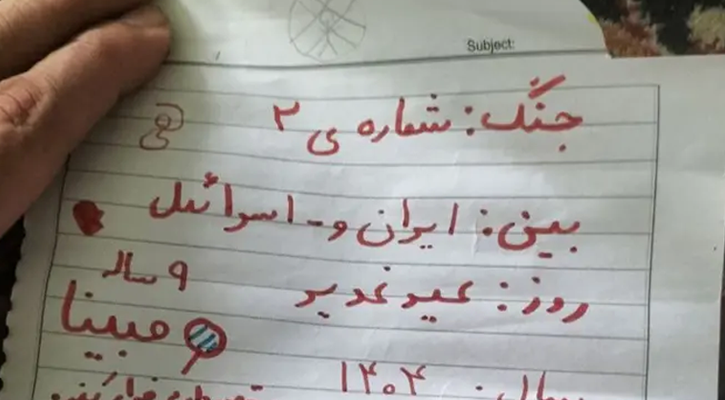 Subject:
جنگ: شماره ی ۲
بین: ایران و - اسرائیل
روز: عید غدیر
۹ ساله
مبینا
سال: ۱۴۰۴